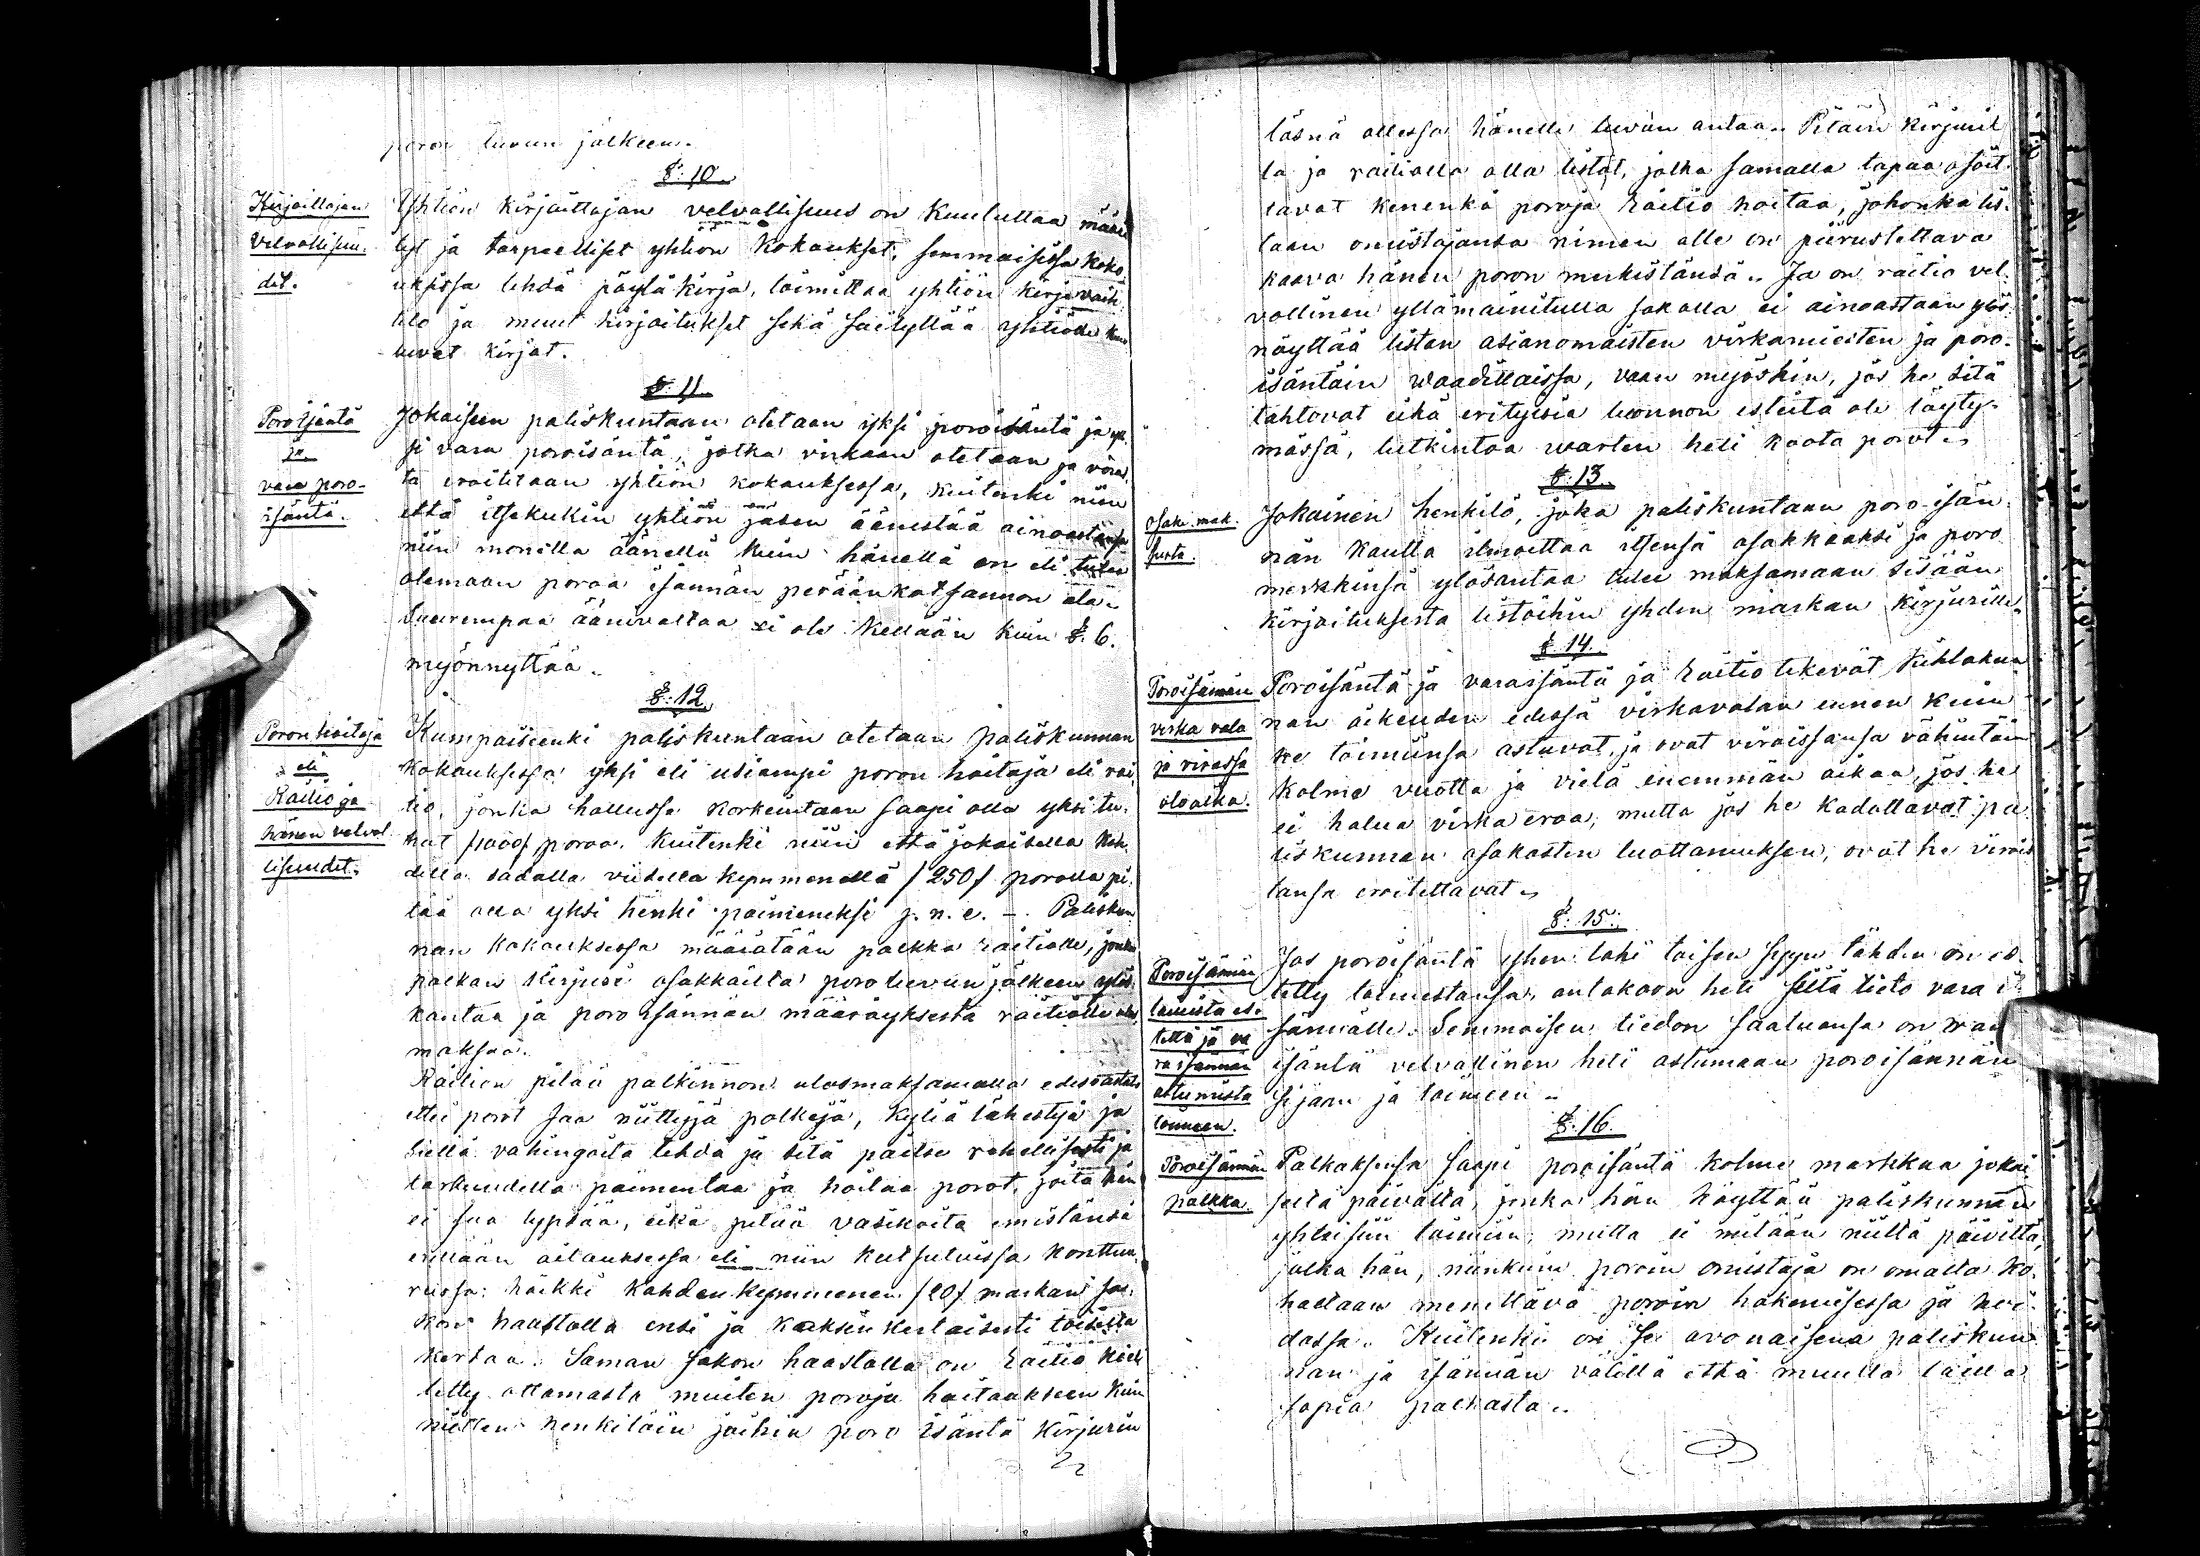 poron luvun jälkeen.
§: 10.
Kirjaittajan
velvollisuu-
det.
Yhtiön kirjaittajan velvollisuus on kuuluttaa määrä
tyt ja tarpeelliset yhtiön kokoukset, semmaisissa koko
uksissa tehdä pöytäkirja, toimittaa yhtiön kirjevaih
to ja muut kirjoitukset sekä säilyttää yhtiölle kuu
luvat kirjat.
§: 11.
Poroisäntä
ja
vara poro-
isäntä.
Jokaiseen paliskuntaan otetaan yksi poroisäntä ja yk
si vara poroisäntä, jotka virkaan otetaan ja viras
ta eroitetaan yhtiön kokouksessa, kuitenki niin
että itsekukin yhtiön jäsen äänestää ainoastansa
niin monella äänellä kuin hänellä on eli tulee
olemaan poroa isännän perään katsannon ala.
Suurempaa äänivaltaa ei ole kellään kuin §. 6.
myönnyttää.
§: 12.
Poron hoitaja
eli
Räitiö ja
hänen velvol
lisuudet.
Kumpaiseenki paliskuntaan otetaan paliskunnan
kokouksessa yksi eli usiampi poron hoitaja eli räi
tiö, jonka hallussa korkeintaan saapi olla yksi tu-
hat /1000/ poroa. Kuitenki niin että jokaisella kah
della sadalla viidellä kymmenellä /250/ porolla pi-
tää olla yksi henki paimeneksi j. n. e. –. Paliskun
nan kokouksessa määrätään palkka räitiölle, jonka
palkan kirjuri osakkailta poroluvun jälkeen ylös
kantaa ja poro isännän määräyksestä räitiölle ulos
maksaa.
Räitiön pitää palkinnon ulosmaksamalla edesvastata
ettei porot saa niittyjä polkeja, kyliä lähestyä ja
siellä vahingoita tehdä ja sitä paitse rehellisesti ja
tarkuudella paimentaa ja hoitaa porot, joita hän
ei saa lypsää, eikä pitää vasikoita emistänsä
erillään aitauksessa eli niin kutsutuissa konttuu
ruissa: kaikki kahdenkymmenen /20/ markan sa-
kon haastolla ensi ja kaksinkertaisesti toisella
kertaa. Saman sakon haastolla on räitiö kiel
letty ottamasta muiten poroja hoitaakseen kuin
niitten henkilöin joihin poro isäntä kirjurin
läsnä ollessa hänelle luvan antaa. Pitäin kirjuril
la ja räitiöllä olla listat, jotka samalla tapaa osoit-
tavat kenenkä poroja räitiö hoitaa, johonka lis-
taan omistajansa nimen alle on piirustettava
kaava hänen poron merkistänsä. Ja on räitiö vel-
vollinen yllämainitulla sakolla ei ainoastaan ylös
näyttää listan asianomaisten virkamiesten ja poro-
isäntäin waadittaissa, vaan myöskin, jos he sitä
tahtovat eikä erityisiä luonnon esteitä ole löyty-
mässä, tutkintoa warten heti koota porot.
§: 13.
Osak. mak.
susta.
Jokainen henkilö, joka paliskuntaan poro-isän
nän kautta ilmoittaa itsensä osakkaaksi ja poro
merkkinsä ylösantaa tulee maksamaan sisään
kirjoituksesta listoihin yhden markan kirjurille.
§. 14.
Poroisännän
virka vala
ja virassa
oloaika.
Poroisäntä ja varaisäntä ja räitiö tekevät kihlakun
nan oikeuden edessä virkavalan ennen kuin
he toimiinsa astuvat, ja ovat viroissansa vähintäin
kolme vuotta ja vielä enemmän aikaa, jos he
ei halua virka eroa; mutta jos he kadottavat pa
liskunnan osakasten luottamuksen, ovat he virois
tansa eroitettavat.
§: 15.
Poroisännän
toimista es-
tettä ja va
raisännän
astumista
toimeen.
Jos poroisäntä yhen tahi toisen syyn tähden on es-
tetty toimestansa, antakoon heti siitä tieto vara i-
sännälle. Semmoisen tiedon saatuansa on vara
isäntä velvollinen heti astumaan poroisännän
sijaan ja toimeen.
§. 16.
Poroisännän
palkka.
Palkaksensa saapi poroisäntä kolme markkaa jokai
selta päivältä, jonka hän käyttää paliskunnan
yhteisiin toimiin, mutta ei mitään niiltä päiviltä,
jotka hän, niinkuin poroin omistaja on omalta ko-
haltaan menettävä poroin hakemisessa ja hoi-
dossa. Kuitenki on se avonaisena paliskun
nan ja isännän välillä että muulla lailla
sopia palkasta.